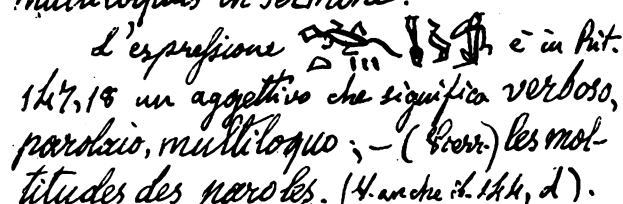 multiloquus in sermone.
L'espressione è in Rit.
147,18 un aggettivo che significa verboso,
parolaio, multiloquo; – (Pierr.) les mol-
titudes des paroles. (V. anche ib. 144, d).